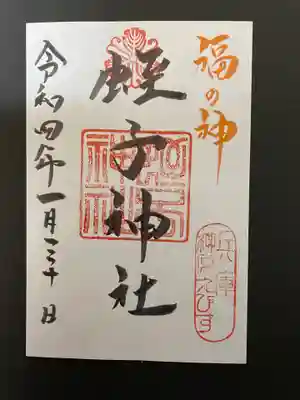 福の神
兵庫
神戸えびす
蛭子神社
令和四年一月三十日